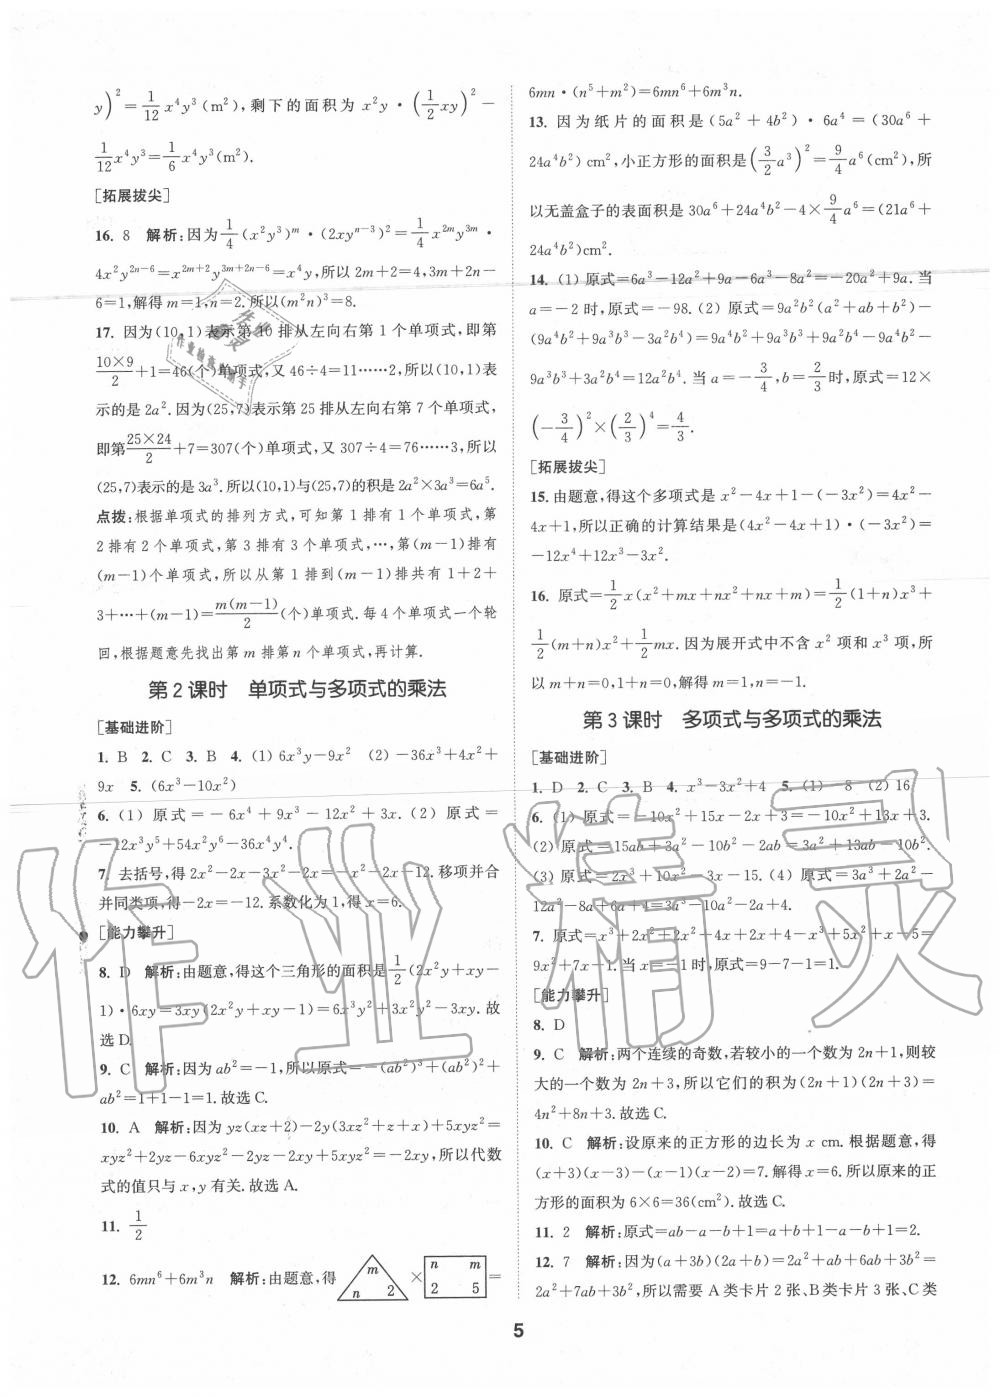 y)²=1/12 x⁴y³(m²),剩下的面积为 x²y·(1/2 xy)²-
1/12 x⁴y³=1/6 x⁴y³(m²).
[拓展拔尖]
16. 8 解析:因为1/4(x²y³)ᵐ·(2xyⁿ⁻³)²=1/4 x²ᵐy³ᵐ·
4x²y²ⁿ⁻⁶=x²ᵐ⁺²y³ᵐ⁺²ⁿ⁻⁶=x⁴y,所以 2m+2=4,3m+2n-
6=1,解得 m=1,n=2.所以(m²n)³=8.
17. 因为(10,1)表示第 10 排从左向右第 1 个单项式,即第
10×9/2+1=46(个)单项式,又 46÷4=11……2,所以(10,1)表
示的是 2a².因为(25,7)表示第 25 排从左向右第 7 个单项式,
即第25×24/2+7=307(个)单项式,又 307÷4=76……3,所以
(25,7)表示的是 3a³.所以(10,1)与(25,7)的积是 2a²×3a³=6a⁵.
点拨:根据单项式的排列方式,可知第 1 排有 1 个单项式,第
2 排有 2 个单项式,第 3 排有 3 个单项式,…,第(m-1)排有
(m-1)个单项式,所以从第 1 排到(m-1)排共有 1+2+
3+…+(m-1)=m(m-1)/2(个)单项式.每 4 个单项式一个轮
回,根据题意先找出第 m 排第 n 个单项式,再计算.
第 2 课时 单项式与多项式的乘法
[基础进阶]
1. B 2. C 3. B 4. (1) 6x³y-9x² (2) -36x³+4x²+
9x 5. (6x³-10x²)
6. (1) 原式=-6x⁴+9x³-12x²+3x. (2) 原式=
-12x³y⁵+54x²y⁶-36x⁴y⁴.
7. 去括号,得 2x²-2x-3x²-2x=-x²-2x-12. 移项并合
并同类项,得-2x=-12. 系数化为 1,得 x=6.
[能力攀升]
8. D 解析:由题意,得这个三角形的面积是1/2(2x²y+xy-
1)·6xy=3xy(2x²y+xy-1)=6x³y²+3x²y²-3xy.故
选 D.
9. C 解析:因为 ab²=-1,所以原式=-(ab²)³+(ab²)²+
ab²=1+1-1=1.故选 C.
10. A 解析:因为 yz(xz+2)-2y(3xz²+z+x)+5xyz²=
xyz²+2yz-6xyz²-2yz-2xy+5xyz²=-2xy,所以代数
式的值只与 x,y 有关.故选 A.
11. 1/2
12. 6mn⁶+6m³n 解析:由题意,得 m n 2 × n m 2 5 =
6mn·(n⁵+m²)=6mn⁶+6m³n.
13. 因为纸片的面积是(5a²+4b²)·6a⁴=(30a⁶+
24a⁴b²)cm²,小正方形的面积是(3/2 a³)²=9/4 a⁶(cm²),所
以无盖盒子的表面积是 30a⁶+24a⁴b²-4×9/4 a⁶=(21a⁶+
24a⁴b²)cm².
14. (1) 原式=6a³-12a²+9a-6a³-8a²=-20a²+9a. 当
a=-2 时,原式=-98. (2) 原式=9a²b²(a²+ab+b²)-
(9a⁴b²+9a³b³-3a²b⁴)=9a⁴b²+9a³b³+9a²b⁴-9a⁴b²-
9a³b³+3a²b⁴=12a²b⁴. 当 a=-3/4,b=2/3时,原式=12×
(-3/4)²×(2/3)⁴=4/3.
[拓展拔尖]
15. 由题意,得这个多项式是 x²-4x+1-(-3x²)=4x²-
4x+1,所以正确的计算结果是(4x²-4x+1)·(-3x²)=
-12x⁴+12x³-3x².
16. 原式=1/2 x(x²+mx+nx²+nx+m)=1/2(1+n)x³+
1/2(m+n)x²+1/2 mx. 因为展开式中不含 x² 项和 x³ 项,所
以 m+n=0,1+n=0,解得 m=1,n=-1.
第 3 课时 多项式与多项式的乘法
[基础进阶]
1. D 2. C 3. B 4. x³-3x²+4 5. (1) -8 (2) 16
6. (1) 原式=-10x²+15x-2x+3=-10x²+13x+3.
(2) 原式=15ab+3a²-10b²-2ab=3a²+13ab-10b².
(3) 原式=2x³+10x²-3x-15. (4) 原式=3a³+2a²-
12a²-8a+6a+4=3a³-10a²-2a+4.
7. 原式=x³+2x²+2x²+4x+2x+4-x³+5x²+x-5=
9x²+7x-1. 当 x=-1 时,原式=9-7-1=1.
[能力攀升]
8. D
9. C 解析:两个连续的奇数,若较小的一个数为 2n+1,则较
大的一个数为 2n+3,所以它们的积为(2n+1)(2n+3)=
4n²+8n+3.故选 C.
10. C 解析:设原来的正方形的边长为 x cm. 根据题意,得
(x+3)(x-3)-(x-1)(x-2)=7. 解得 x=6. 所以原来的正
方形的面积为 6×6=36(cm²).故选 C.
11. 2 解析:原式=ab-a-b+1=a+b+1-a-b+1=2.
12. 7 解析:因为(a+3b)(2a+b)=2a²+ab+6ab+3b²=
2a²+7ab+3b²,所以需要 A 类卡片 2 张、B 类卡片 3 张、C 类
5
作业精灵